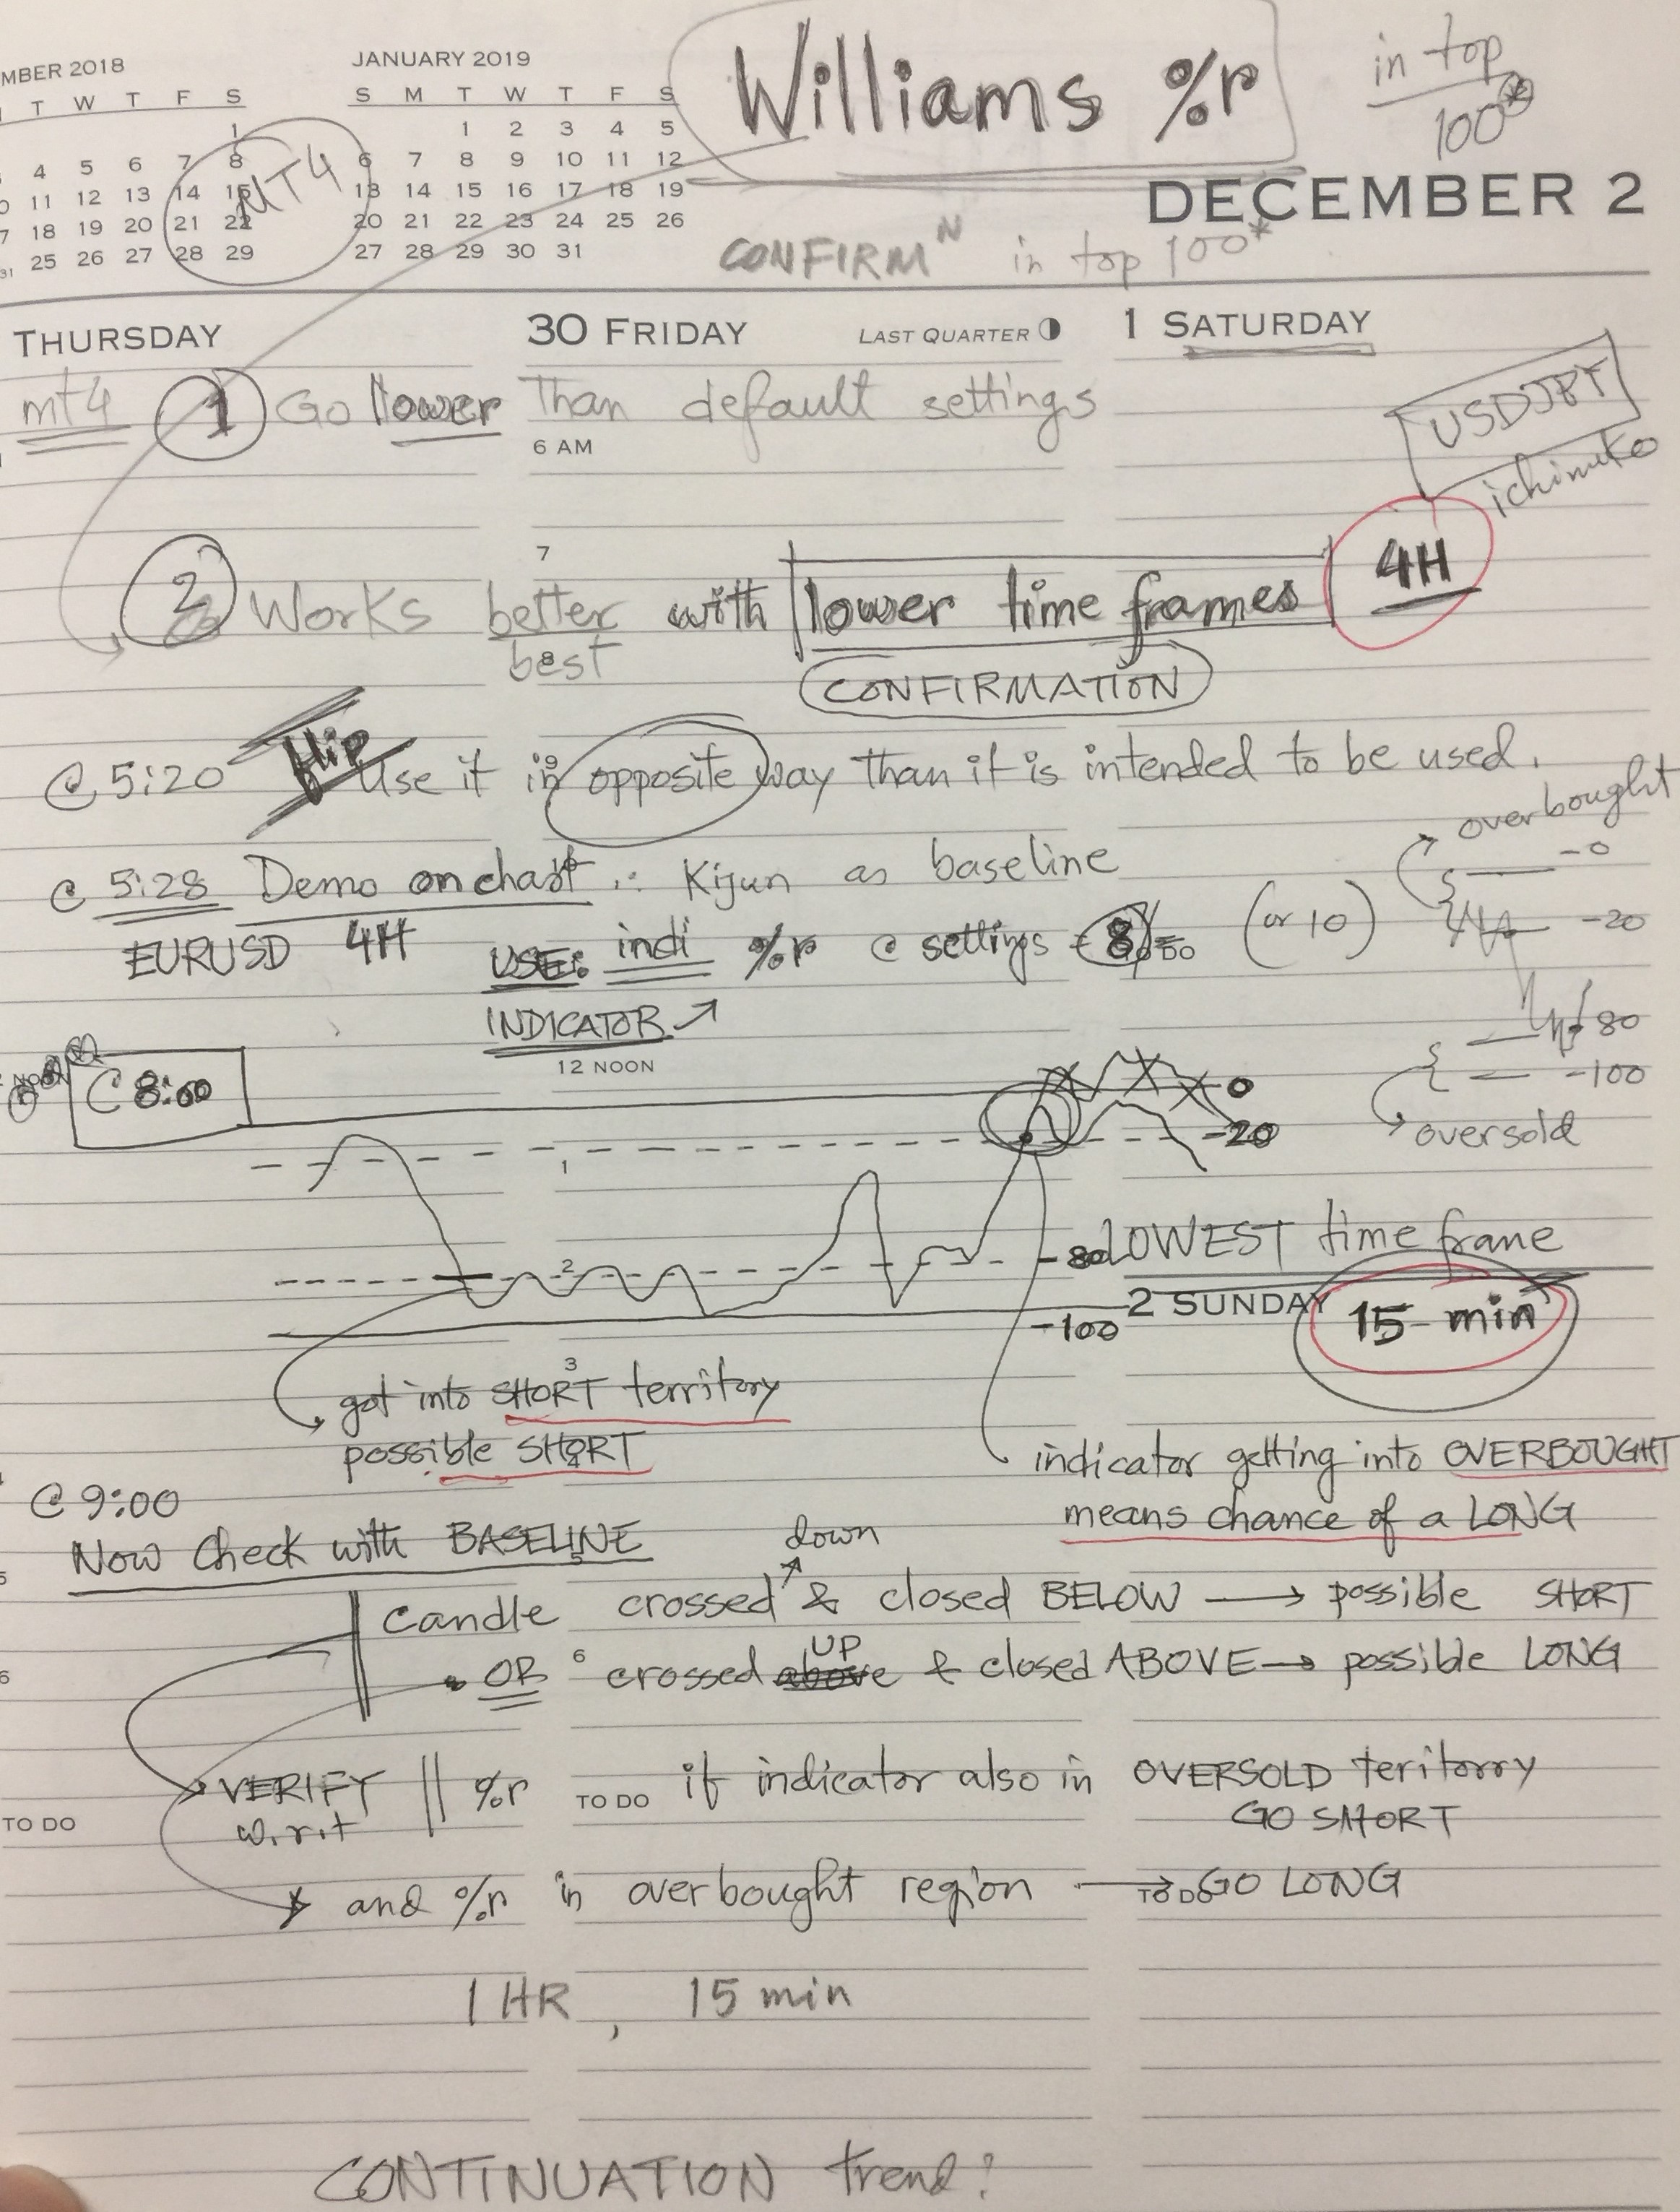 MBER 2018
T W T F S
1
4 5 6 7 8
11 12 13 14 15
18 19 20 21 22
25 26 27 28 29
31
MT4
JANUARY 2019
S M T W T F S
1 2 3 4 5
6 7 8 9 10 11 12
13 14 15 16 17 18 19
20 21 22 23 24 25 26
27 28 29 30 31
Williams %r
in top
100*
DECEMBER 2
CONFIRM N in top 100*
THURSDAY
30 FRIDAY LAST QUARTER
1 SATURDAY
mt4 1 Go lower than default settings
6 AM
USDJPY
ichimuko
7
2 Works better with lower time frames 4H
best
8
CONFIRMATION
@ 5:20 flip Use it in opposite way than it is intended to be used.
overbought
@ 5:28 Demo on chart : Kijun as baseline
-0
EURUSD 4H USE: indi %r @ settings 8 (or 10)
-20
INDICATOR
80
12 NOON
-100
@ 8:00
0
oversold
-20
1
LOWEST time frame
2
-80
2 SUNDAY
15 min
-100
3
got into SHORT territory
possible SHORT
indicator getting into OVERBOUGHT
means chance of a LONG
@ 9:00
Now check with BASELINE
down
5
candle crossed & closed BELOW → possible SHORT
UP
6
OR crossed above & closed ABOVE → possible LONG
6
VERIFY || %r if indicator also in OVERSOLD teritorry
w.r.t
TO DO
TO DO
GO SHORT
and %r in overbought region → GO LONG
TO DO
1 HR , 15 min
CONTINUATION trend?